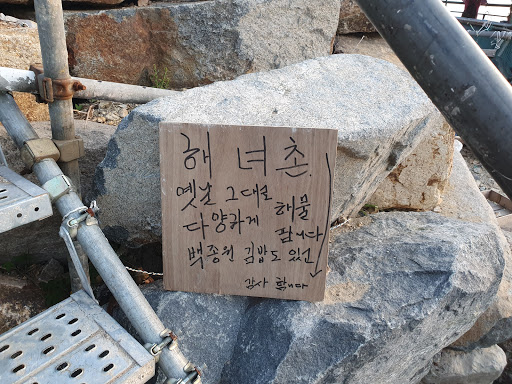 해녀촌
옛날 그대로
다양하게 해물
팝니다
백종원 김밥도 있
감사 합니다